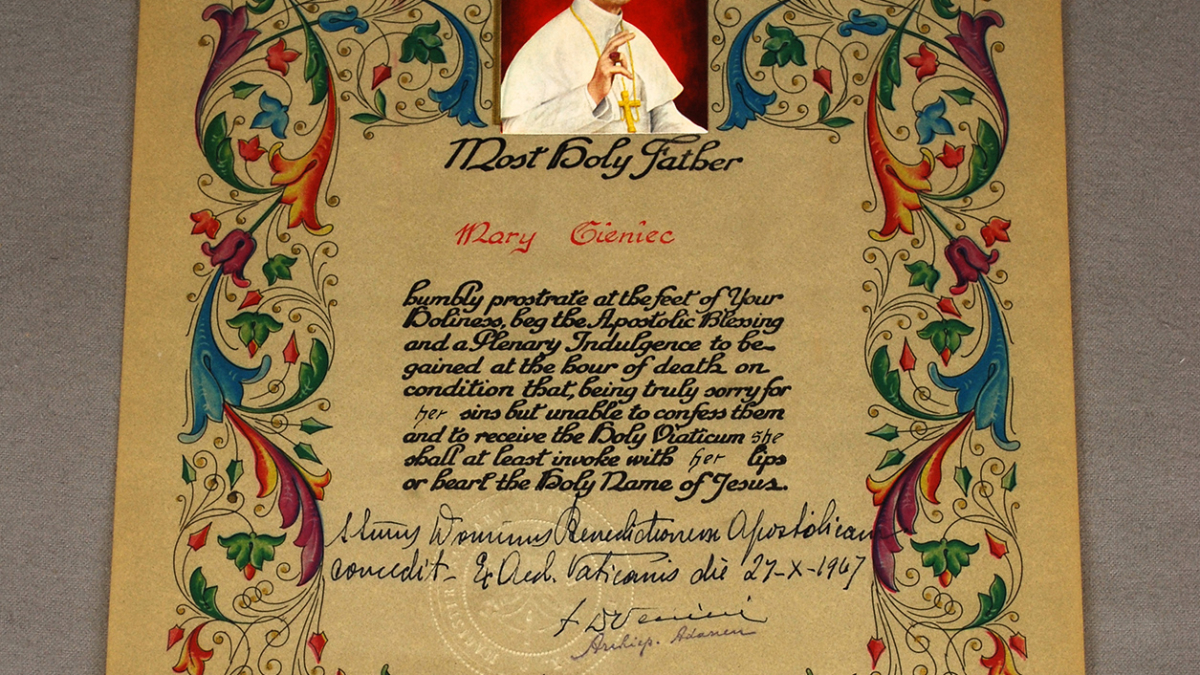 Most Holy Father
Mary Gieniec
humbly prostrate at the feet of Your
Holiness, beg the Apostolic Blessing
and a Plenary Indulgence to be-
gained at the hour of death on
condition that, being truly sorry for
her sins but unable to confess them
and to receive the Holy Viaticum she
shall at least invoke with her lips
or heart the Holy Name of Jesus.
Dominus Benedictionem Apostolicam
concedit - Ex Aed. Vaticanis die 27-X-1947
Archiep.